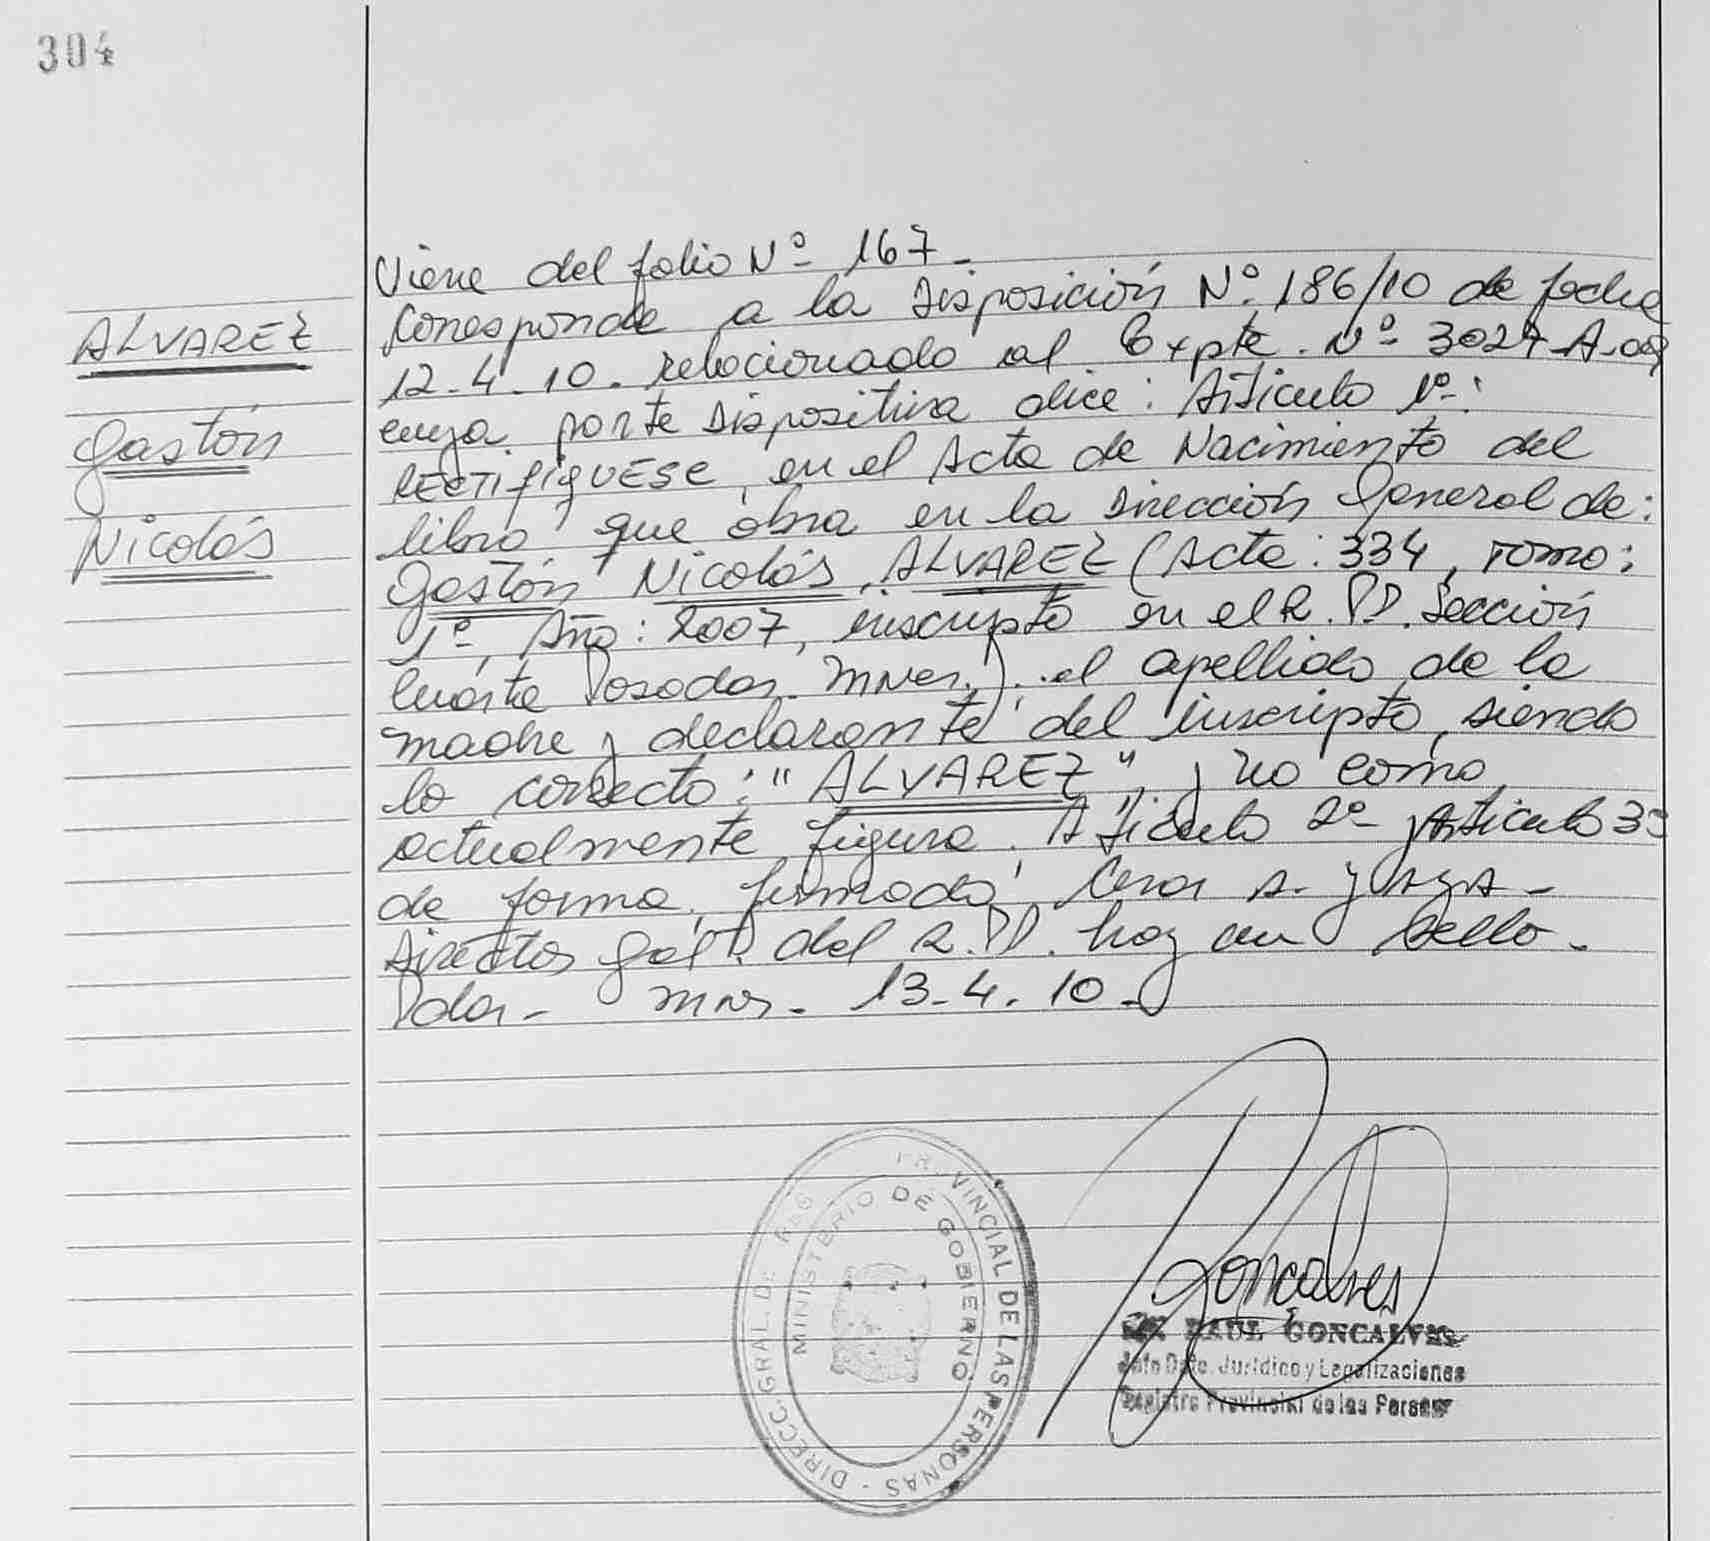 304
ALVAREZ
Gastón
Nicolás
Viene del folio Nº 167-
Corresponde a la Disposición Nº 186/10 de fecha
12-4-10. relacionado al Expte. Nº 3027-A-09
cuya parte Dispositiva dice: Artículo 1º:
RECTIFIQUESE, en el Acta de Nacimiento del
libro que obra en la Dirección General de:
Gastón Nicolás ALVAREZ (Acta: 334, Tomo:
1º, Año: 2007, inscripto en el R.PP. Sección
Cuarta Posadas Mnes.) el apellido de la
madre y declarante del inscripto, siendo
lo correcto: "ALVAREZ", y no como
actualmente figura. Artículo 2º y Artículo 3º
de forma, firmado
Director Gral. del R.PP. hay un Sello-
Pdas- Mns- 13-4-10-
DIRECC. GRAL. DE REG. PROVINCIAL DE LAS PERSONAS -
MINISTERIO DE GOBIERNO
Goncalves
RAUL GONCALVES
Jefe Dpto. Jurídico y Legalizaciones
Registro Provincial de las Personas